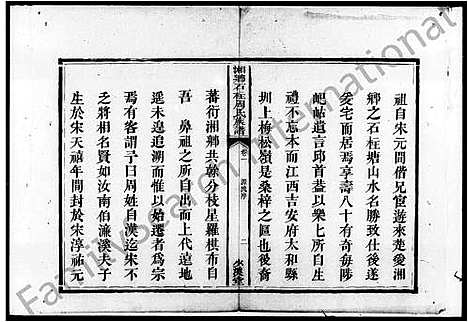 祖自宋元間偕兄宦遊來楚愛湘
鄉之石柱塘山水名勝致仕後遂
爰宅而居焉享壽八十有奇每陟
岵岵遺言邱首葢以樂乃所生
禮不忘本而江西吉安府太和縣
圳上梅松嶺是桑梓之區也後裔
湘鄉石柱周氏族譜
卷一
源流序
二
蕃衍湘鄉共榦分枝星羅棋布自
吾鼻祖之所自出而上代遠地
遥未遑追溯而惟以始遷者為宗
焉有客謂予曰周姓自漢迄宋不
乏將相名賢如汝南伯濂溪夫子
生於宋天禧年間封於宋淳祐元
FamilySearch International